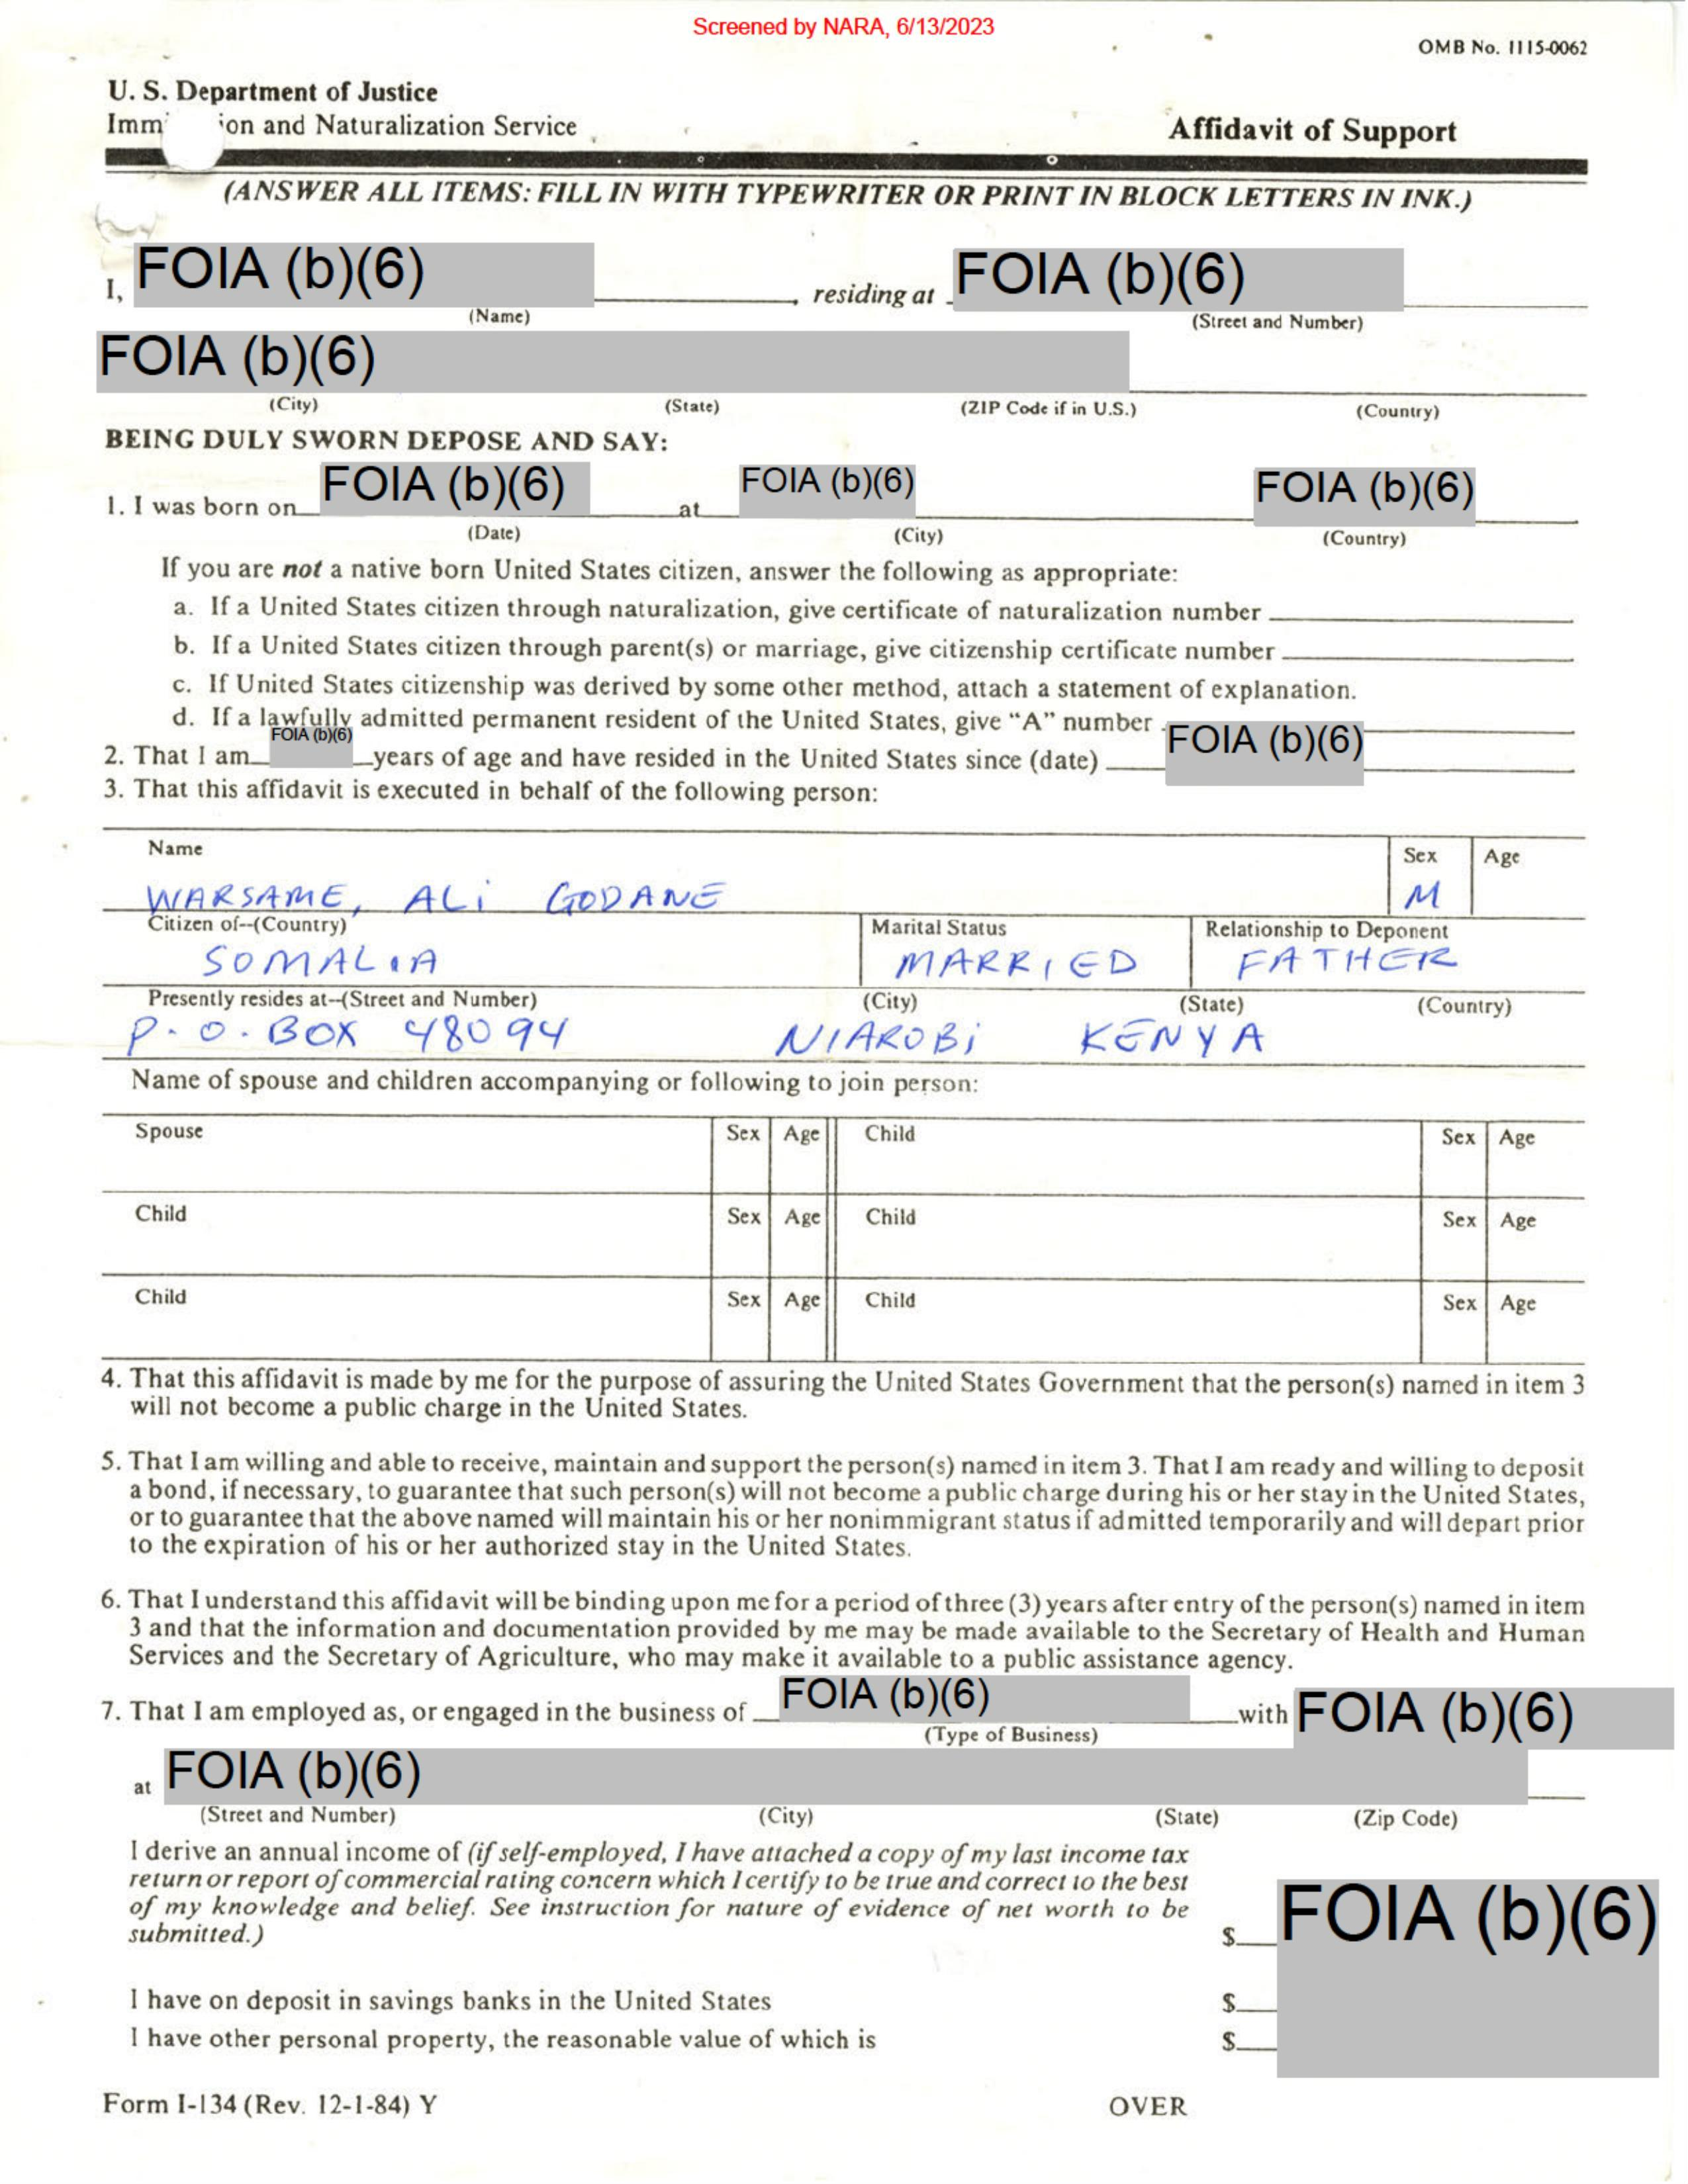 Screened by NARA, 6/13/2023
OMB No. 1115-0062
U. S. Department of Justice
Imm ion and Naturalization Service
Affidavit of Support
(ANSWER ALL ITEMS: FILL IN WITH TYPEWRITER OR PRINT IN BLOCK LETTERS IN INK.)
I, FOIA (b)(6) , residing at FOIA (b)(6)
(Name) (Street and Number)
FOIA (b)(6)
(City) (State) (ZIP Code if in U.S.) (Country)
BEING DULY SWORN DEPOSE AND SAY:
1. I was born on FOIA (b)(6) at FOIA (b)(6) FOIA (b)(6)
(Date) (City) (Country)
If you are not a native born United States citizen, answer the following as appropriate:
a. If a United States citizen through naturalization, give certificate of naturalization number
b. If a United States citizen through parent(s) or marriage, give citizenship certificate number
c. If United States citizenship was derived by some other method, attach a statement of explanation.
d. If a lawfully admitted permanent resident of the United States, give “A” number FOIA (b)(6)
2. That I am FOIA (b)(6) years of age and have resided in the United States since (date)
3. That this affidavit is executed in behalf of the following person:
Name Sex Age
WARSAME, ALi GODANE M
Citizen of--(Country) Marital Status Relationship to Deponent
SOMALIA MARRIED FATHER
Presently resides at--(Street and Number) (City) (State) (Country)
P.O. BOX 48094 NIAROBi KENYA
Name of spouse and children accompanying or following to join person:
Spouse Sex Age Child Sex Age
Child Sex Age Child Sex Age
Child Sex Age Child Sex Age
4. That this affidavit is made by me for the purpose of assuring the United States Government that the person(s) named in item 3
will not become a public charge in the United States.
5. That I am willing and able to receive, maintain and support the person(s) named in item 3. That I am ready and willing to deposit
a bond, if necessary, to guarantee that such person(s) will not become a public charge during his or her stay in the United States,
or to guarantee that the above named will maintain his or her nonimmigrant status if admitted temporarily and will depart prior
to the expiration of his or her authorized stay in the United States.
6. That I understand this affidavit will be binding upon me for a period of three (3) years after entry of the person(s) named in item
3 and that the information and documentation provided by me may be made available to the Secretary of Health and Human
Services and the Secretary of Agriculture, who may make it available to a public assistance agency.
7. That I am employed as, or engaged in the business of FOIA (b)(6) with FOIA (b)(6)
(Type of Business)
at FOIA (b)(6)
(Street and Number) (City) (State) (Zip Code)
I derive an annual income of (if self-employed, I have attached a copy of my last income tax
return or report of commercial rating concern which I certify to be true and correct to the best
of my knowledge and belief. See instruction for nature of evidence of net worth to be
submitted.) $ FOIA (b)(6)
I have on deposit in savings banks in the United States $
I have other personal property, the reasonable value of which is $
Form I-134 (Rev. 12-1-84) Y OVER